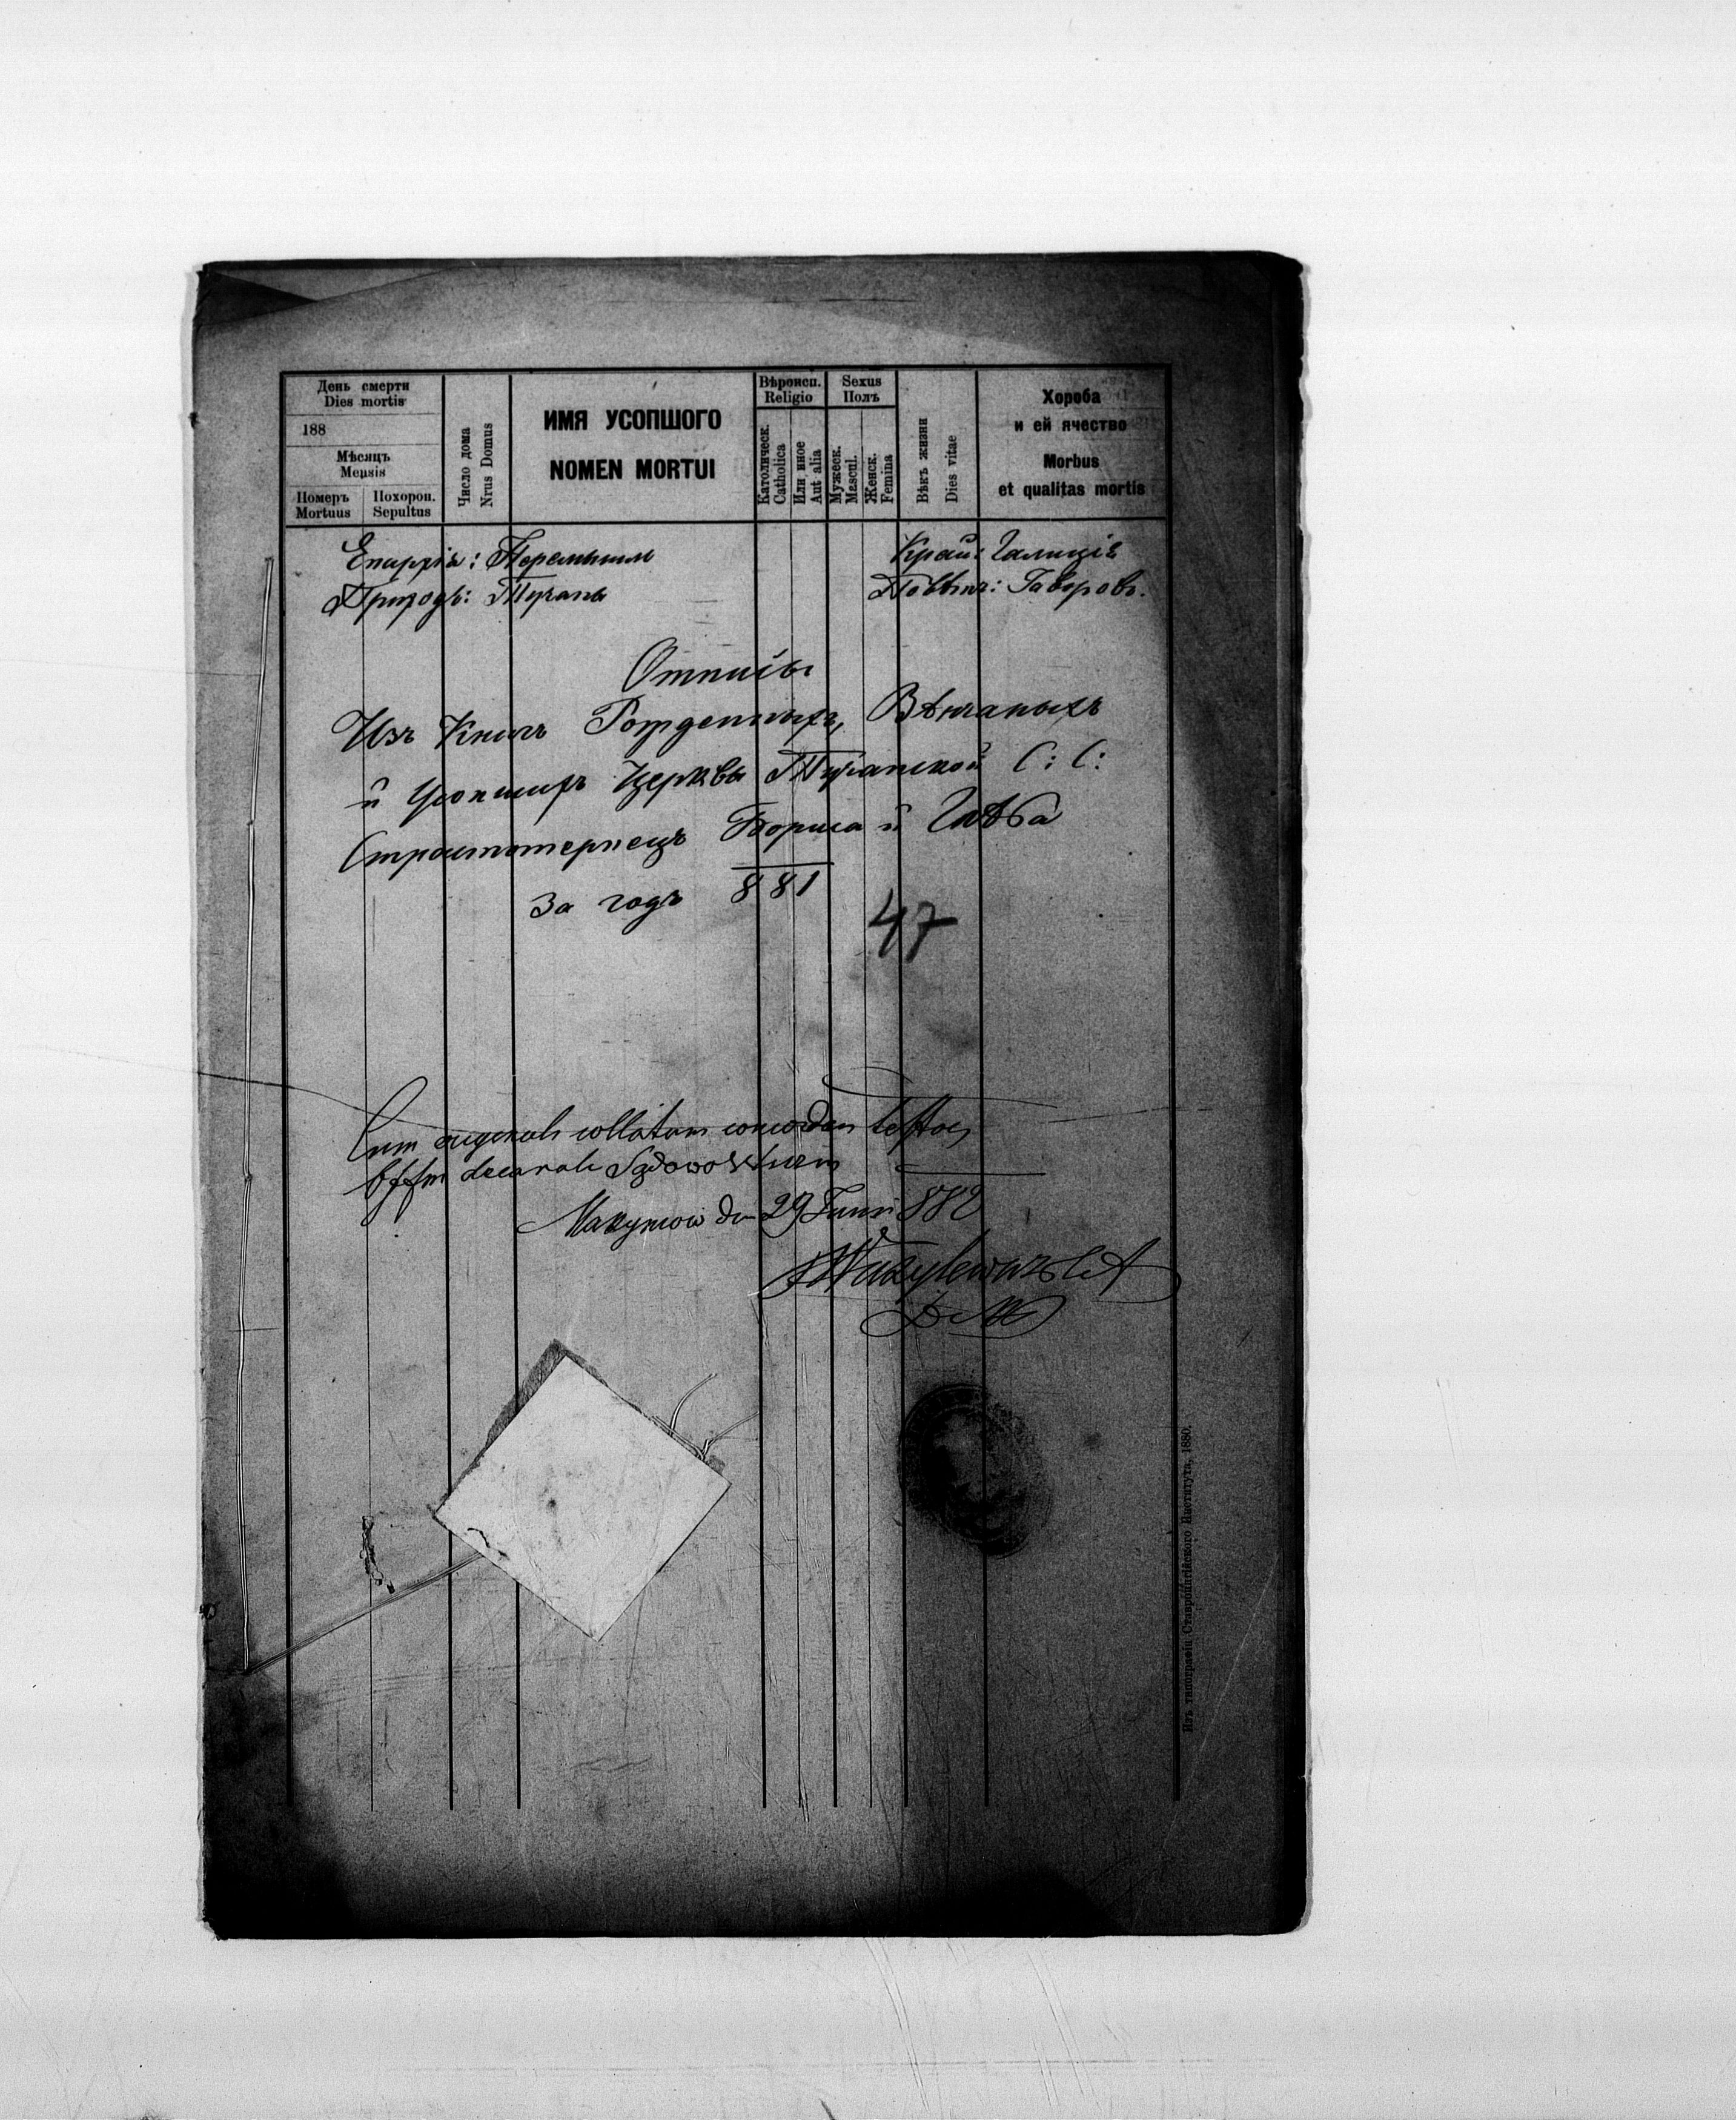 День смерти
Dies mortis
188
Мѣсяцъ
Mensis
Номеръ
Mortuus
Похорон.
Sepultus
Число дома
Nrus Domus
ИМЯ УСОПШОГО
NOMEN MORTUI
Вѣроисп.
Religio
Католическ.
Catholica
Или иное
Aut alia
Sexus
Полъ
Мужеск.
Mascul.
Женск.
Femina
Вѣкъ жизни
Dies vitae
Хороба
и ей ячество
Morbus
et qualitas mortis
Епархія: Перемышль Край: Галиція
Приходъ: Тучапы Повѣтъ: Яворовъ.
Отписы
Изъ Книгъ Рожденныхъ, Вѣнчаныхъ
и Усопшихъ Церквы Тучапской С: С:
Страстотерпецъ Бориса и Глѣба
За годъ 881
47
Cum originali collatum concordans testor
Offm decanale Sądowo
29 Juni 882
Изъ типографіи Ставропигійского Института, 1880.